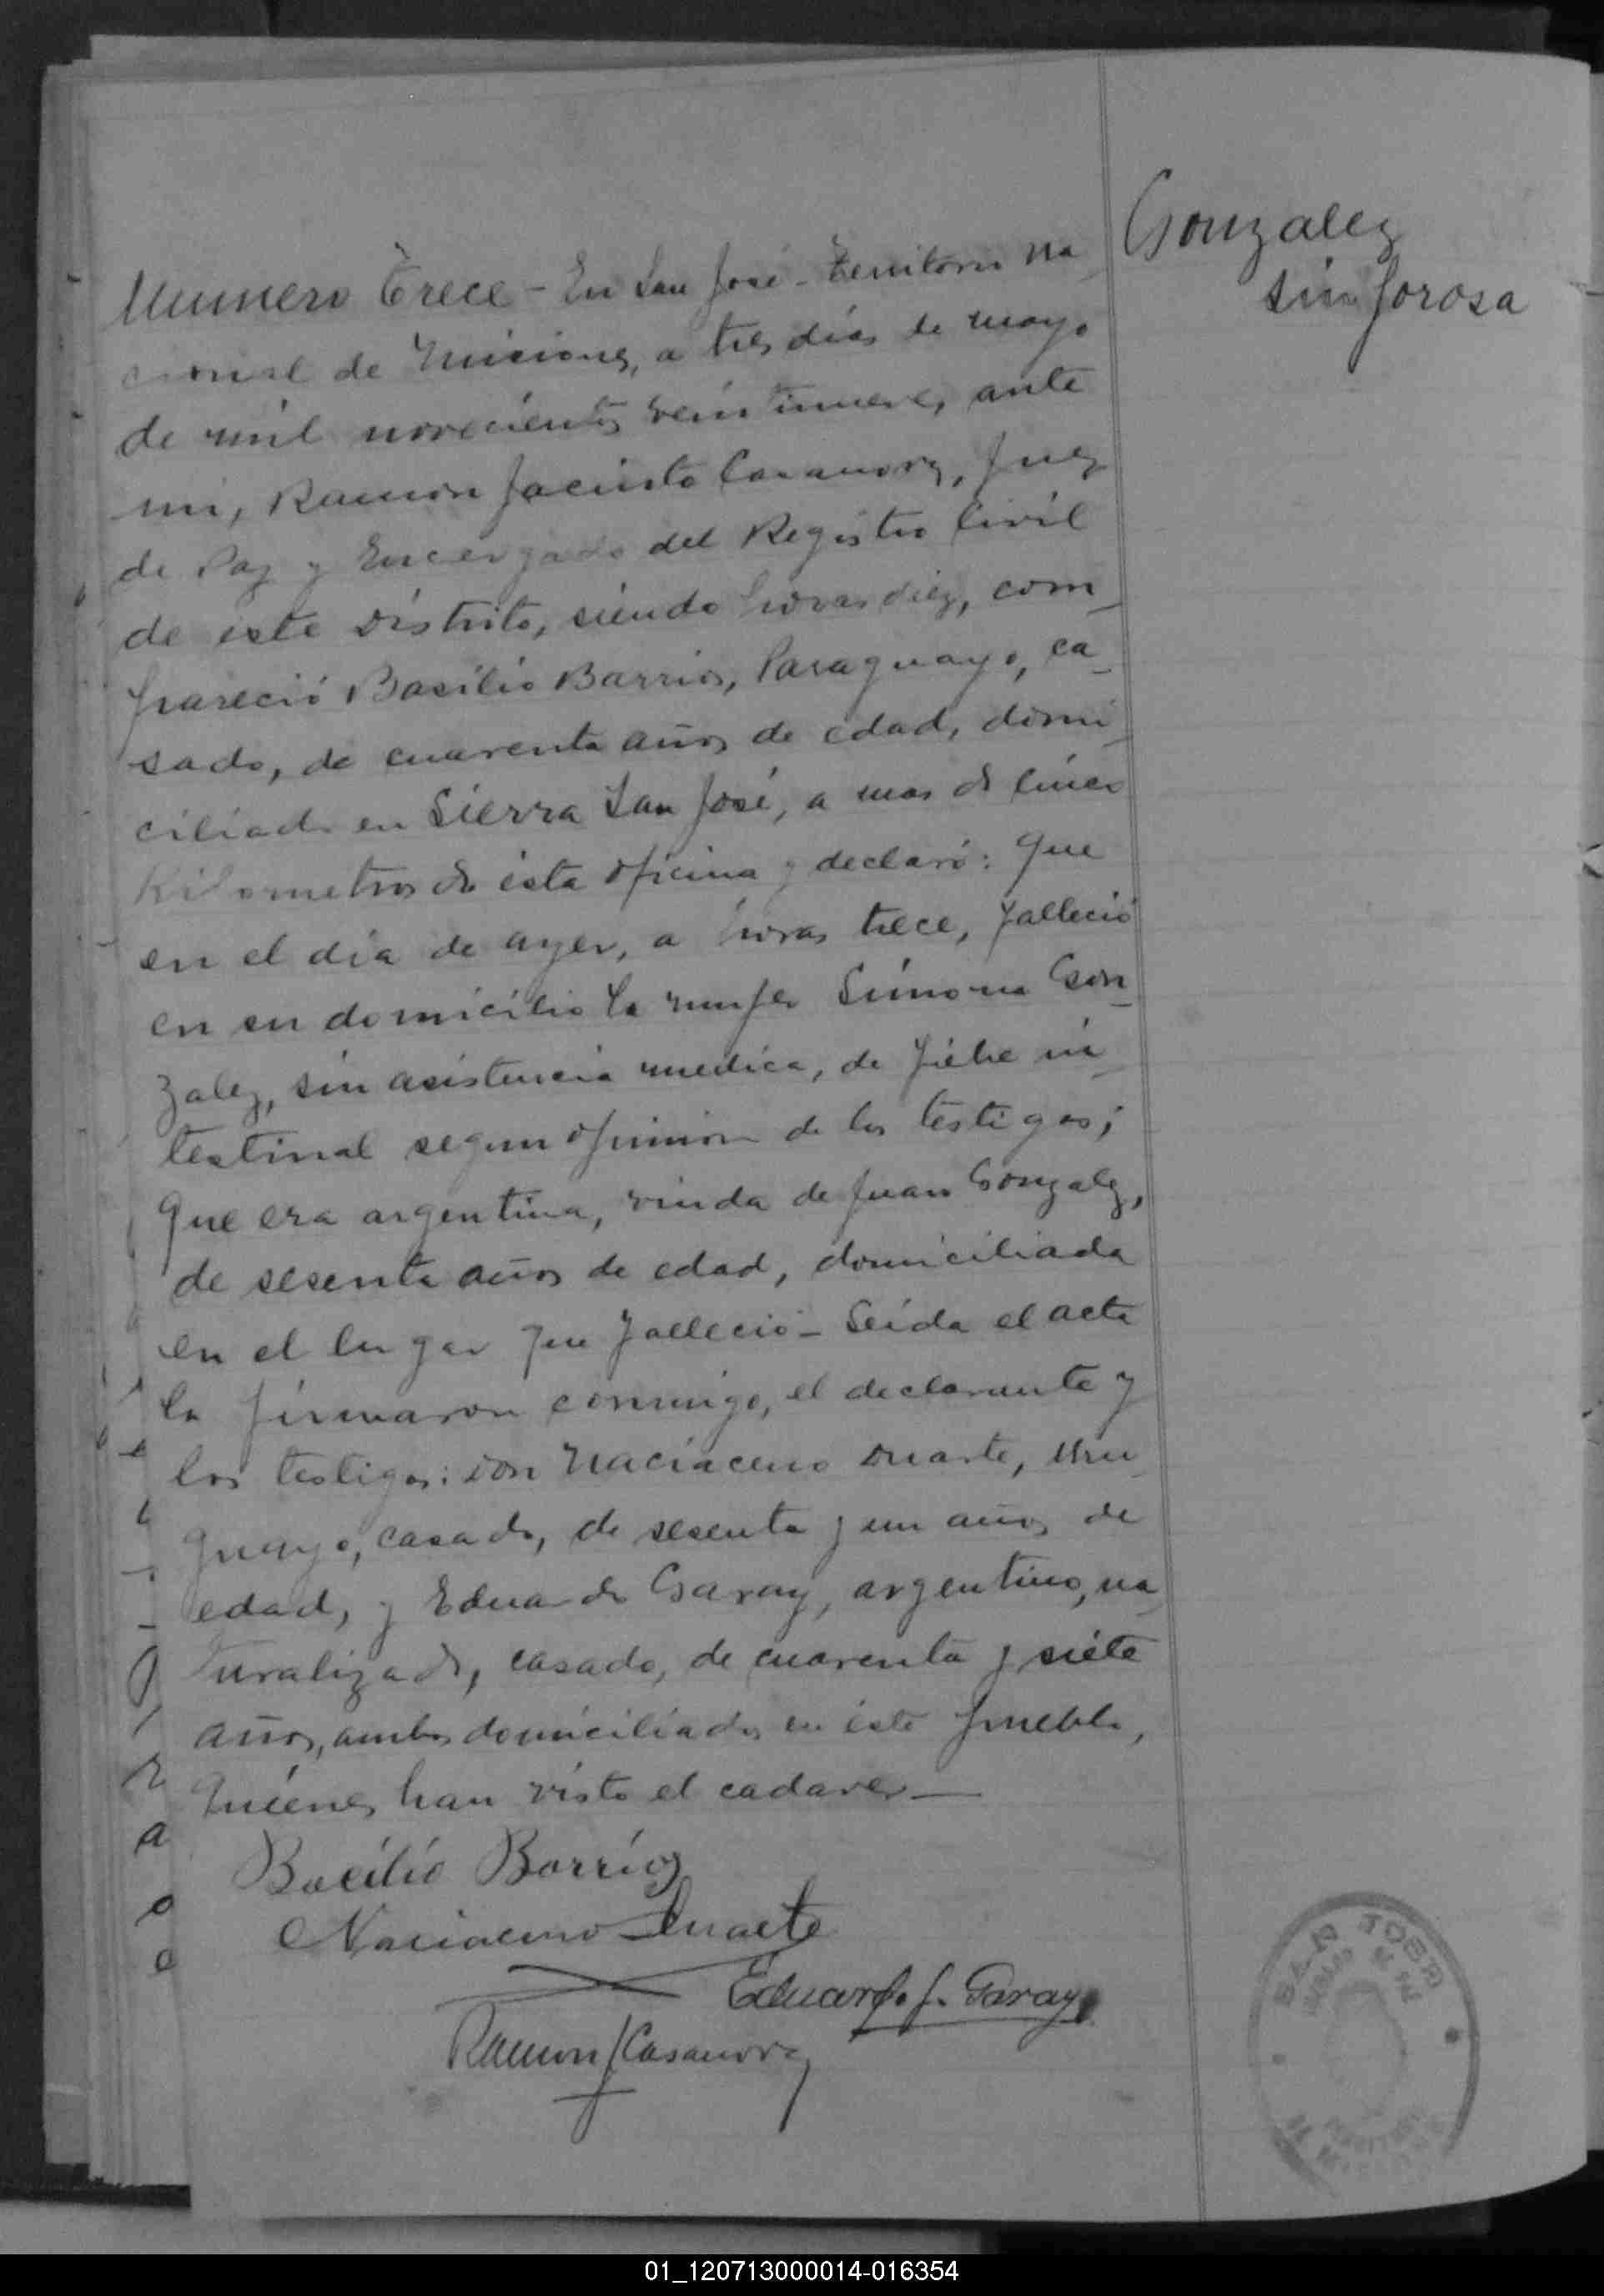 Gonzalez
Sinforosa
Numero Trece - En San José - Territorio Na
cional de Misiones, a tres días de mayo
de mil novecientos veintinueve, ante
mi, Ramon Jacinto Casanova, Juez
de Paz y Encargado del Registro Civil
de este distrito, siendo horas diez, com_
pareció Basilio Barrios, Paraguayo, ca_
sado, de cuarenta años de edad, domi_
ciliado en Sierra San José, a mas de cinco
Kilometros de esta oficina y declaró: Que
en el día de ayer, a horas trece, falleció
en su domicilio la mujer Simona Gon_
zalez, sin asistencia medica, de fiebre in_
testinal segun opinion de los testigos;
Que era argentina, viuda de Juan Gonzalez,
de sesenta años de edad, domiciliada
en el lugar que falleció - Leída el acta
la firmaron conmigo, el declarante y
los testigos: don Naciaceno Duarte, Uru_
guayo, casado, de sesenta y un años de
edad, y Eduardo Garay, argentino, na_
turalizado, casado, de cuarenta y siete
años, ambos domiciliados en este pueblo,
Quienes han visto el cadaver—
Bacilio Barrios
Naciaceno Duarte
Eduardo J. Garay
Ramon J Casanova
SAN JOSE
01_120713000014-016354